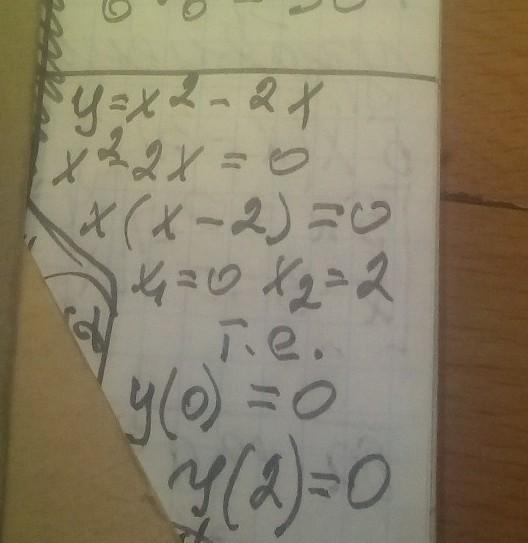 y=x²-2x
x²-2x=0
x(x-2)=0
x₁=0 x₂=2
т.е.
y(0)=0
y(2)=0